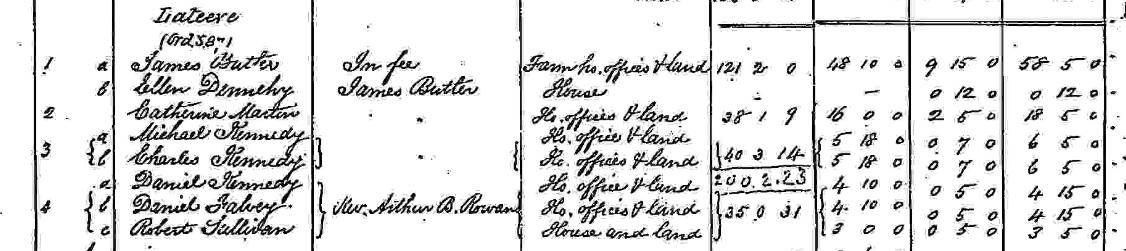 Lateeve
(Ord. S. 87)
1 a James Butler In fee Farm ho. offices & land 121 2 0 48 10 0 9 15 0 58 5 0
b Ellen Dennehy James Butler House — 0 12 0 0 12 0
2 Catherine Martin " Ho. offices & land 38 1 9 16 0 0 2 5 0 18 5 0
a Michael Kennedy Ho. office & land 5 18 0 0 7 0 6 5 0
3 b Charles Kennedy " Ho. offices & land 40 3 14 5 18 0 0 7 0 6 5 0
200.2.23
a Daniel Kennedy Ho. office & land 4 10 0 0 5 0 4 15 0
4 b Daniel Falvey Rev. Arthur B. Rowan Ho. offices & land 35 0 31 4 10 0 0 5 0 4 15 0
c Robert Sullivan House and land 3 0 0 0 5 0 3 5 0